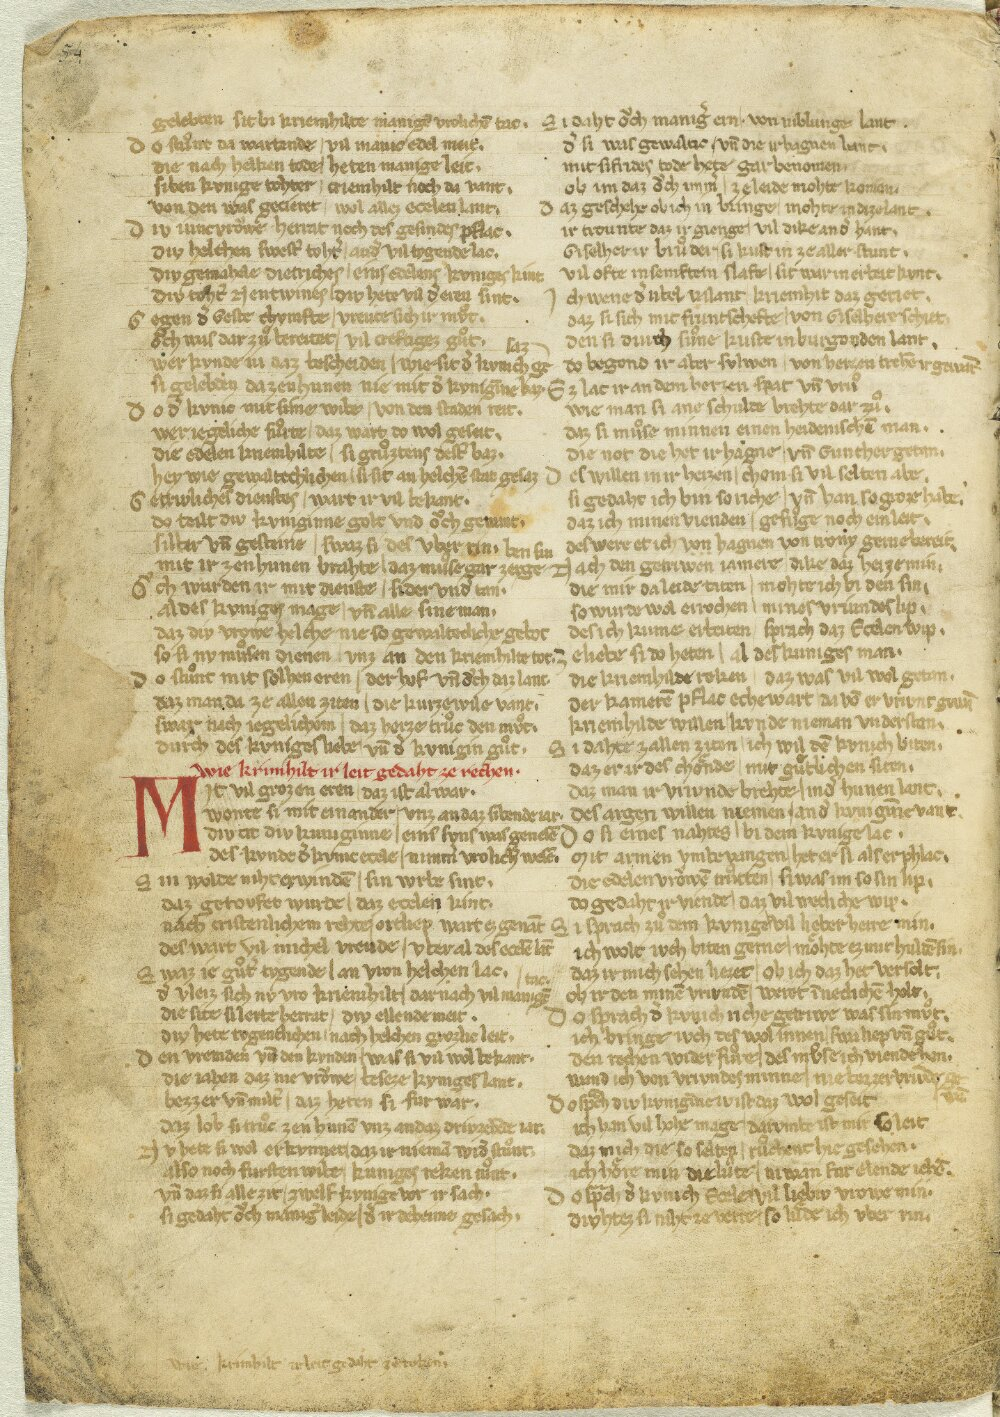 gelebten sit bi kriemhilte manigē vrolichē tac.
D o stůnt da wartende / vil manic edel meit.
die nach helken tode / heten manige leit.
siben kvnige tohter / criemhilt noch da vant.
von den was gecieret / wol allez ecelen lant.
D iv iuncvrŏwe herrat noch des gesindes pflac.
div helchen swest' toht' / and' vil tvgende lac.
div gemahale dietriches / eins edelens kvniges kint
div toht' nentwines / div hete vil d' eren sint.
G egen d' geste chvmfte / vreute sich ir mvt.
ŏch was dar zů bereitet / vil creftigez gůt.
wer kvnde iu daz bescheiden / wie sit d' kvnich saz
si gelebten da zen hunen nie mit d' kvniginne baz
D o d' kvnic mit sime wibe / von den staden reit.
wer iegeliche fůrte / daz wart do wol geseit.
die edelen kriemhilte / si grůztens dest' baz.
hey wie gewaltechlichen / si sit an helchen stat gesaz
G etriwliches dienstes / wart ir vil bekant.
do teilt div kvniginne golt vnd ŏch gewant.
silber vñ gesteine / swaz si des vber rin
mit ir zen hunen brahte / daz můse gar zergeben sin
Ŏ ch wurden ir mit dienste / sider vnd'tan.
al des kvniges mage / vñ alle sine man.
daz div vrŏwe helche nie so gewaltecliche gebot
so si nv můsen dienen / vnz an den kriemhilte tot.
D o stůnt mit solhen eren / der hof vñ ŏch daz lant
daz man da ze allen ziten / die kurzewile vant.
swar nach iegelichem / daz herze trůc den můt.
durch des kvniges liebe / vñ d' kvnigin gůt.
wie krimhilt ir leit gedaht ze rechen.
M it vil grozen eren / daz ist al war.
wonte si mit einander / vnz an daz sibende iar.
div cit div kuniginne / eins svns was genesē
des kvnde d' kvnic ecele / nimm' vrolich' wesē.
S in wolde niht erwindē / sin wibe sint.
daz getovfet wurde / daz ecelen kint.
nach cristenlichem rehte / ortliep wart ez genāt
des wart vil michel vreude / vber al des ecelē lāt
S waz ie gůt' tvgende / an vron helchen lac.
d' vleiz sich nv vro kriemhilt / dar nach vil manigē tac.
die site si lerte herrat / div ellende meit.
div hete togenlichen / nach helchen grozhe leit.
D en vremden vñ den kvnden / was si vil wol bekant.
die iahen daz nie vrŏwe / beseze kvniges lant.
bezzer vñ milt' / daz heten si fur war.
daz lob si trůc zen hunē vnz an daz drizehēde iar.
N v hete si wol erkvnnet / daz ir niemā wid' stůnt.
also noch fursten wibe / kuniges reken tůnt.
vñ daz si alle zit / zwelf kvnige vor ir sach.
si gedaht ŏch manig' leide / d' ir da heime gesach.
S i daht ŏch manig' ern / von niblunge lant.
d' si was gewaltic / vñ die ir hagnen hant.
mit sifrides tode hete gar benomen.
ob im daz ŏch imm' / ze leide mohte komen.
D az geschehe ob ich in bringe / mohte in daz lant.
ir troumte daz ir gienge / vil dike an d' hant.
Giselher ir brůder / si kust in ze aller stunt.
vil ofte in semftem slafe / sit wart in erbeit kvnt.
I ch wene d' vbel valant / kriemhilt daz geriet.
daz si sich mit friuntschefte / von Giselhere schiet.
den si durch sůne kuste in burgonden lant.
do begond ir aber salwen / von herzen trehē ir gewāt
E z lac ir an dem herzen / spat vñ vrů.
wie man si ane schulde brehte dar zů.
daz si můse minnen einen heidenischē man.
die not die het ir hagne / vñ Gunther getan.
D es willen in ir herzen / chom si vil selten abe.
si gedaht ich bin so riche / vñ han so groze habe.
daz ich minen vienden / gefůge noch ein leit.
des were et ich von hagnen von trony gerne bereit.
N ach den getriwen iamert / dike daz herze min.
die mir da leide taten / mohte ich bi den sin.
so wurde wol errochen / mines vriundes lip.
des ich kume erbiten / sprach daz Ecelen wip.
Z e liebe si do heten / al des kuniges man.
die kriemhilde reken / daz was vil wol getan.
der kamerē pflac echewart da vŏ er vriunt gewan
kriemhilde willen kvnde nieman vnd'sten.
S i dahte zallen ziten / ich wil dē kvnich biten.
daz er ir des ghonde / mit gůtlichen siten.
daz man ir vriunde brehte / in d' hunen lant.
des argen willen niemen / an d' kvnigīne vant.
D o si eines nahtes / bi dem kvnige lac.
Mit armen vmbevangen / het er si als er phlac.
die edelen vrŏwen trůtten / si was im so sin lip.
do gedaht ir viende / daz vil werliche wip.
S i sprach zů dem kvnige / vil lieber herre min.
ich wolt iuch biten gerne / mohte ez mit hulden sin.
daz ir mich sehen liezet / ob ich daz het versolt.
ob ir den minē vriundē / weret īneclichē holt.
D o sprach d' kvnich riche getriwe was sin můt.
ich bringe iuch des wol innen / swa liep vñ gůt.
den rechen wider fůre / des můse ich viende han.
wand ich von vriundes minne / nie bezzer vriunde gewan
D o sp̄ch div kvnigīne iv ist daz wol geseit
ich han vil hohe mage / darvmbe ist mir so leit
daz mich die so selten / růchent hie gesehen.
ich hŏre min die lute / niwan fur elende iehē.
D o sp̄ch d' kvnich Ecele / vil liebiv vrowe min.
diuhtez si niht ze verre / so lůde ich vber rin.
wie krimhilt ir leit gedaht ze rechen.